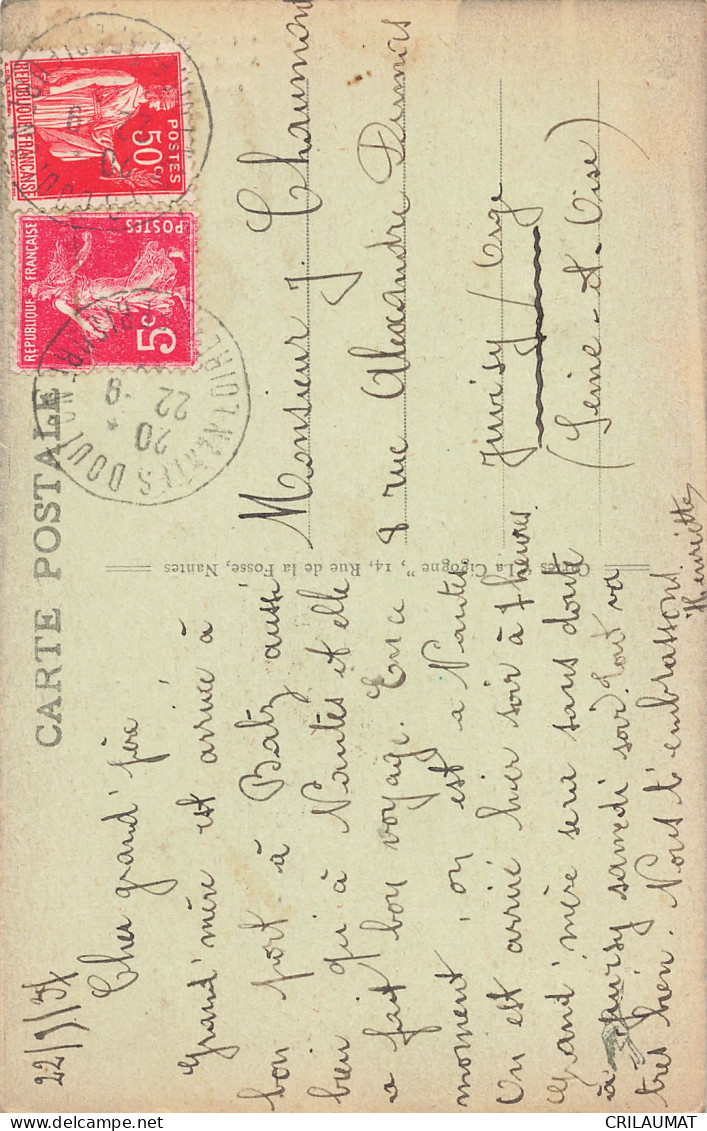 CARTE POSTALE
22/9/37
Cher grand'père
Grand'mère est arrivée à
bon port à Batz aussi
bien qu'à Nantes et elle
a fait bon voyage. En ce
moment, on est à Nantes
On est arrivé hier soir à 7 heures.
Grand'mère sera sans doute
à Juvisy samedi soir. Tout va
très bien. Nous t'embrassons.
Henriette
Cartes "La Cigogne", 14, Rue de la Fosse, Nantes
Monsieur J. Chaumont
8 rue Alexandre Dumas
Juvisy s/ Orge
(Seine-et-Oise)
REPUBLIQUE FRANÇAISE
POSTES
50c
REPUBLIQUE FRANÇAISE
POSTES
5c
NANTES DOULON
LOIRE INFRE
20
22 -9
CRILAUMAT